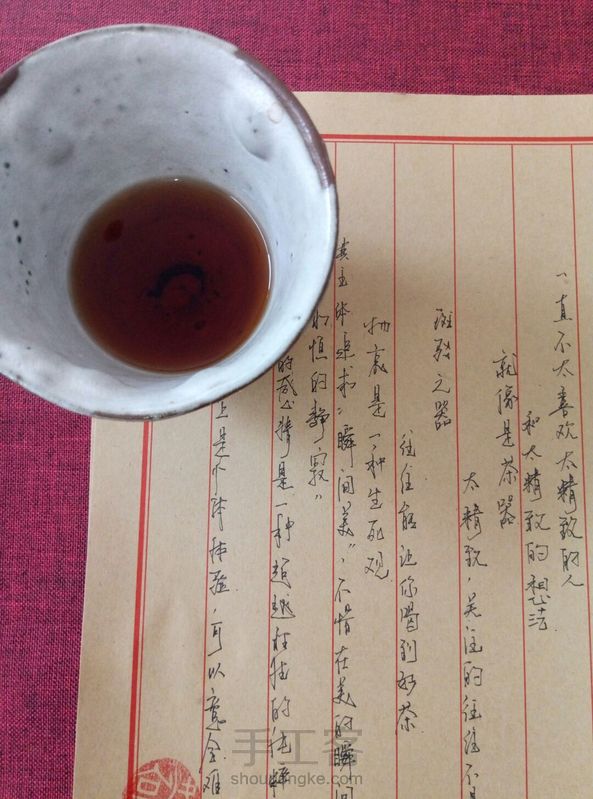 一直不太喜欢太精致的人
和太精致的想法
就像是茶器
太精致，关注的往往不是
斑驳之器
往往能让你喝到好茶
物哀是一种生死观
其主体追求“瞬间美”，不惜在美的瞬间
恒的静寂”
的感情是一种超越理性的纯粹
上是个体体验，可以意会难
手工客
shougongke.com